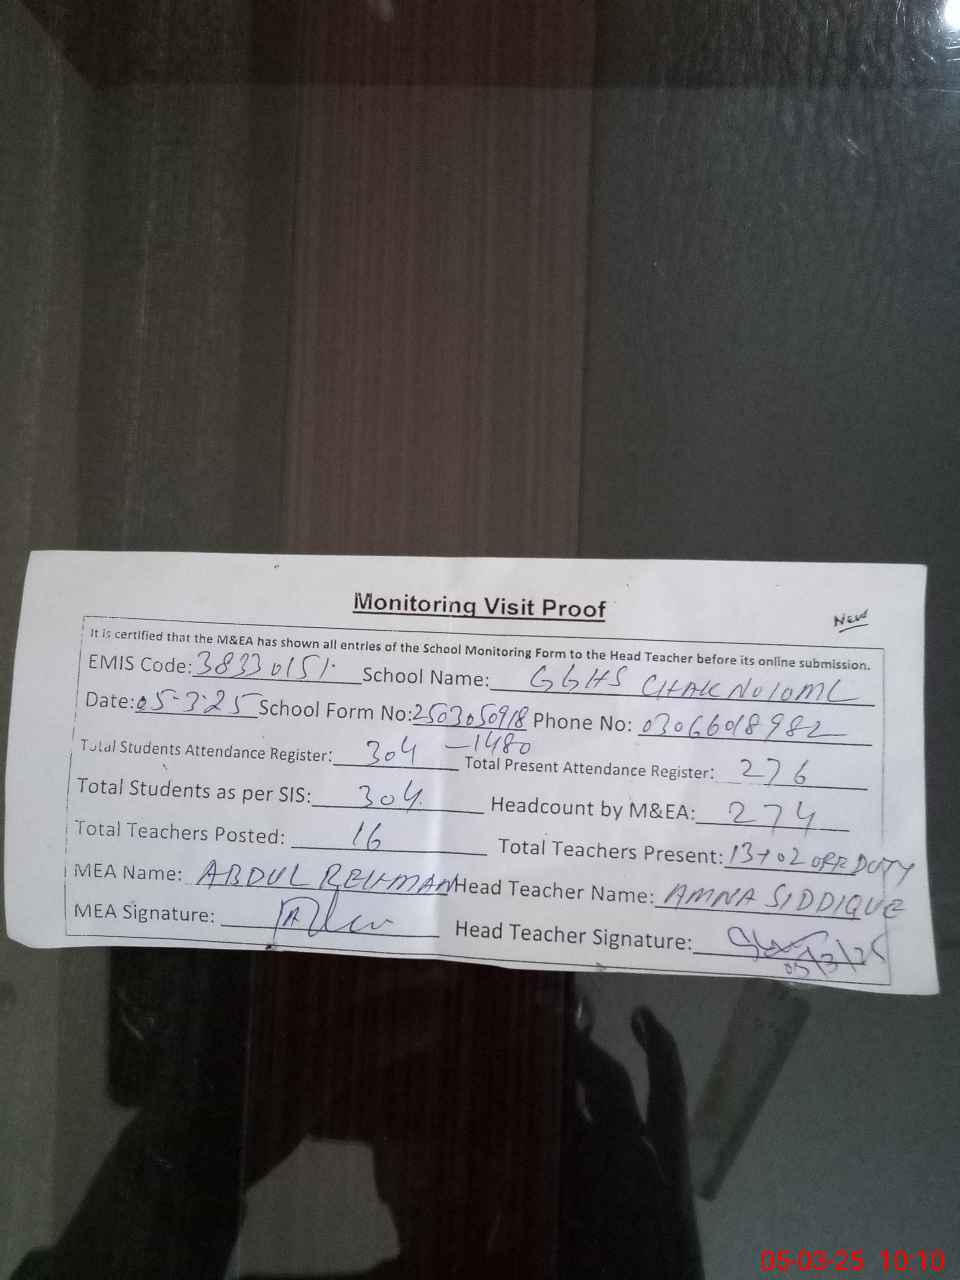 Monitoring Visit Proof
New
It is certified that the M&EA has shown all entries of the School Monitoring Form to the Head Teacher before its online submission.
EMIS Code: 38330151. School Name: GGHS CHAK NO 10 ML
Date: 05-3-25 School Form No: 2503050918 Phone No: 03066018982
-1480
Total Students Attendance Register: 304 Total Present Attendance Register: 276
Total Students as per SIS: 304. Headcount by M&EA: 274
Total Teachers Posted: 16 Total Teachers Present: 13+02 OFF DUTY
MEA Name: ABDUL REHMAN Head Teacher Name: AMNA SIDDIQUE
MEA Signature: Head Teacher Signature:
05/3/25
05-03-25 10:10